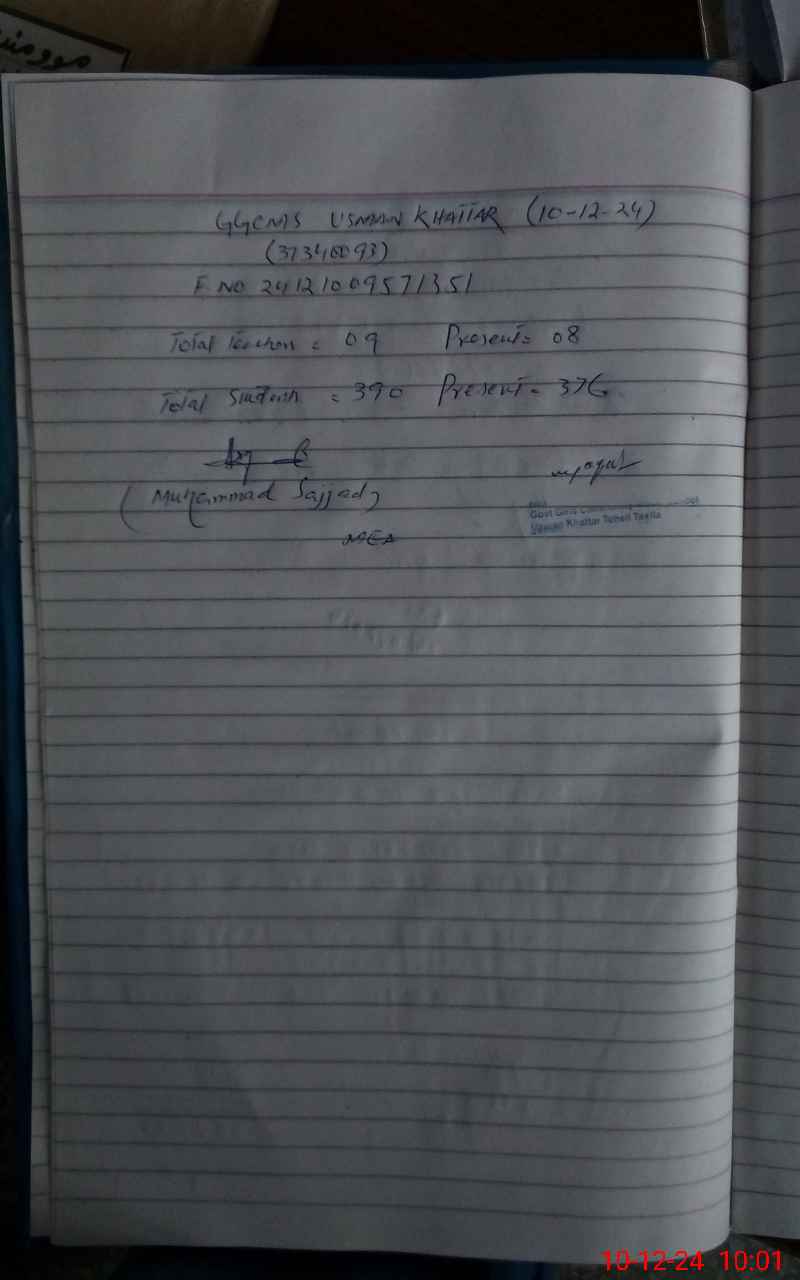 موومنٹ
GGCMS USMAN KHATTAR (10-12-24)
(37340093)
F. NO 24121009571351
Total Teachers = 09 Present = 08
Total Students = 390 Present = 376
(Muhammad Sajjad)
MEA
Govt Girls
Usman Khattar Tehsil Taxila
10-12-24 10:01